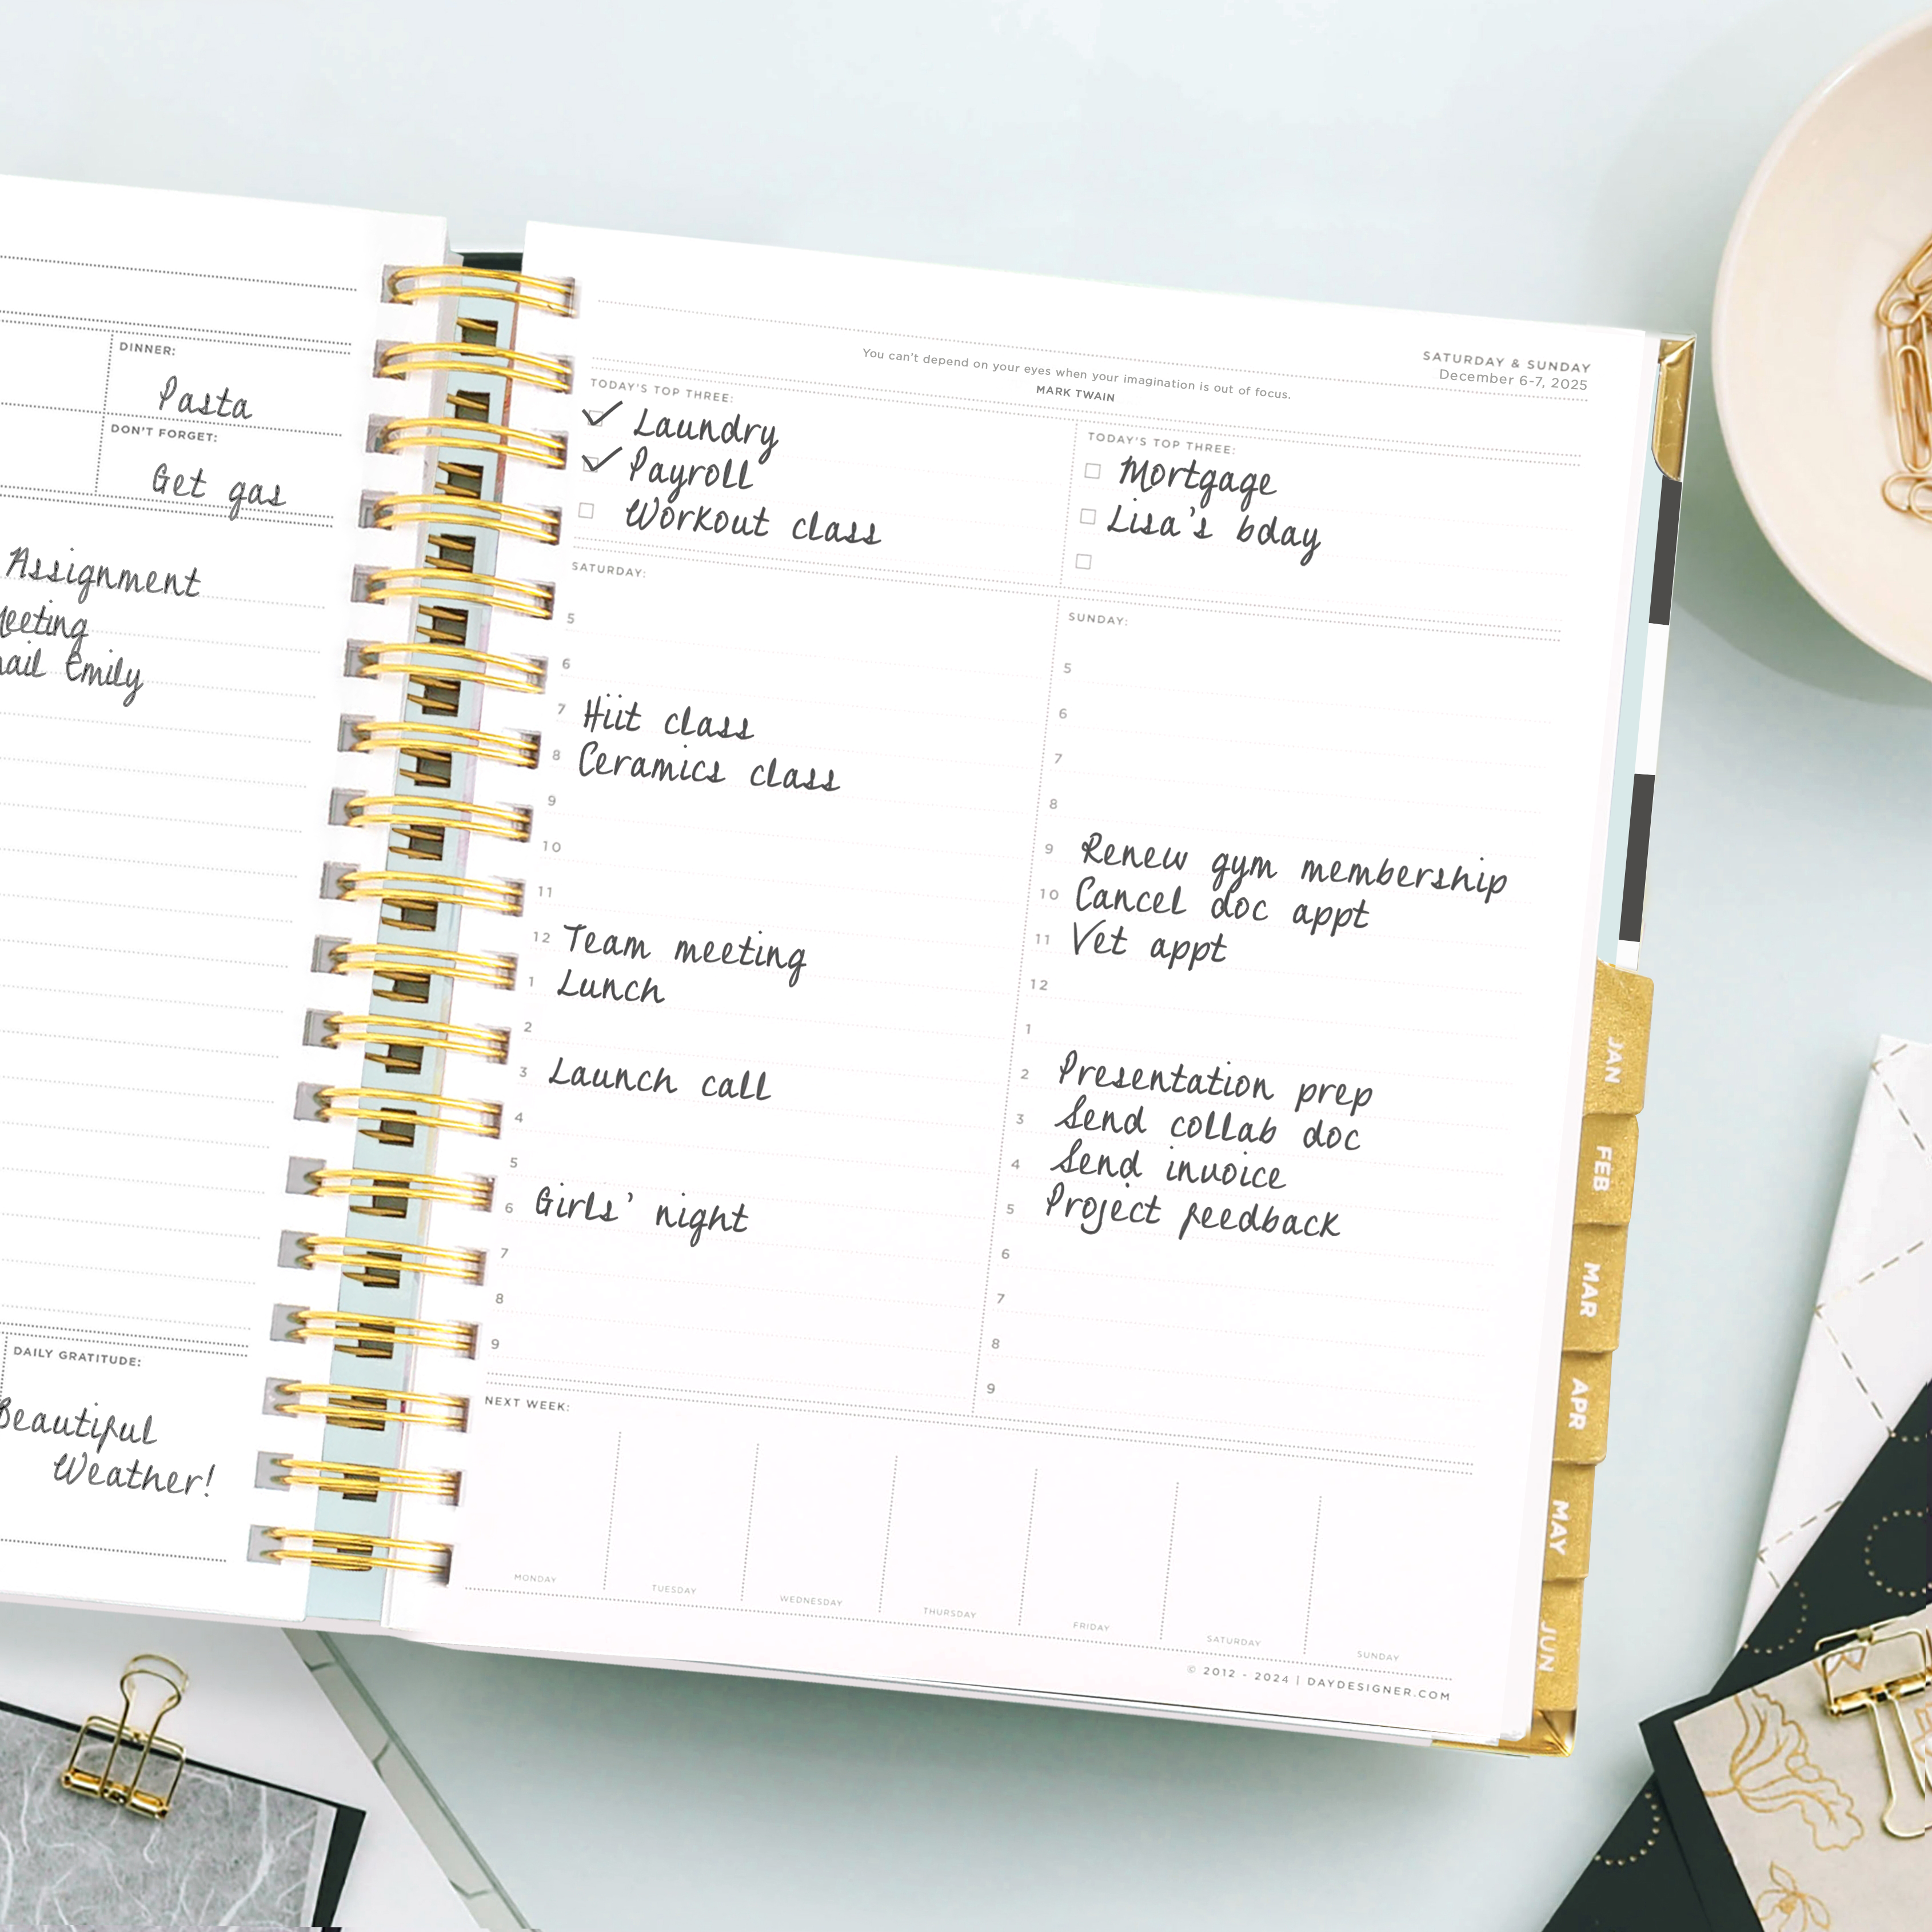 DINNER:
Pasta
DON'T FORGET:
Get gas
Assignment
Meeting
Emily
DAILY GRATITUDE:
Beautiful
Weather!
SATURDAY & SUNDAY
December 6-7, 2025
You can't depend on your eyes when your imagination is out of focus.
MARK TWAIN
TODAY'S TOP THREE:
Laundry
Payroll
Workout class
TODAY'S TOP THREE:
Mortgage
Lisa's bday
SATURDAY:
5
6
7 Hiit class
8 Ceramics class
9
10
11
12 Team meeting
1 Lunch
2
3 Launch call
4
5
6 Girls' night
7
8
9
SUNDAY:
5
6
7
8
9 Renew gym membership
10 Cancel doc appt
11 Vet appt
12
1
2 Presentation prep
3 Send collab doc
4 Send invoice
5 Project feedback
6
7
8
9
NEXT WEEK:
MONDAY
TUESDAY
WEDNESDAY
THURSDAY
FRIDAY
SATURDAY
SUNDAY
© 2012 - 2024 | DAYDESIGNER.COM
JAN
FEB
MAR
APR
MAY
JUN